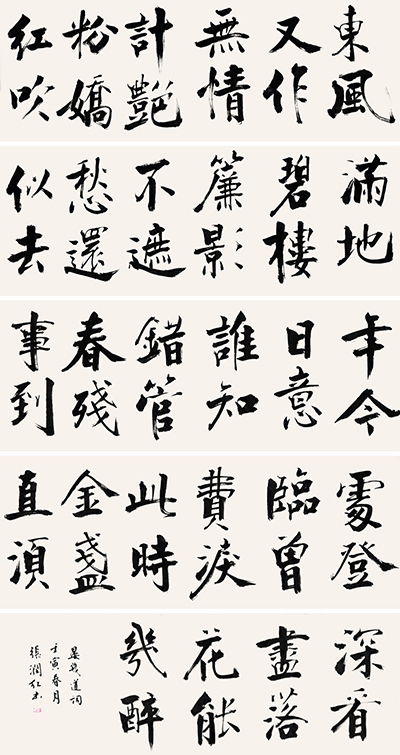 東風
又作
無情
計艷
粉嬌
紅吹
滿地
碧樓
簾影
不遮
愁還
似去
年今
日意
誰知
錯管
春殘
事到
處登
臨曾
費淚
此時
金盞
直須
深看
盡落
花能
幾醉
晏幾道詞
壬寅春月
張潤红书